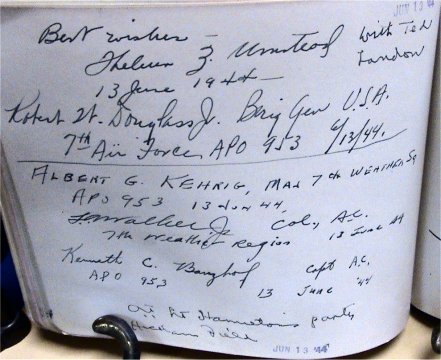 JUN 13 '44
Best wishes –
Thelma Z. Umstead with Ted
13 June 1944 – Landon
Robert W. Douglass Jr. Brig Gen U.S.A.
7th Air Force, APO 953 6/13/44.
ALBERT G. KEHRIG, MAJ 7th WEATHER SQ
APO 953 13 JUN 44
Walker Jr Col, A.C.
7th Weather Region 13 June 44
Kenneth C. Capt A.C.
APO 953 13 June '44
At Lt Hamilton's party
Hickam Field
JUN 13 '44